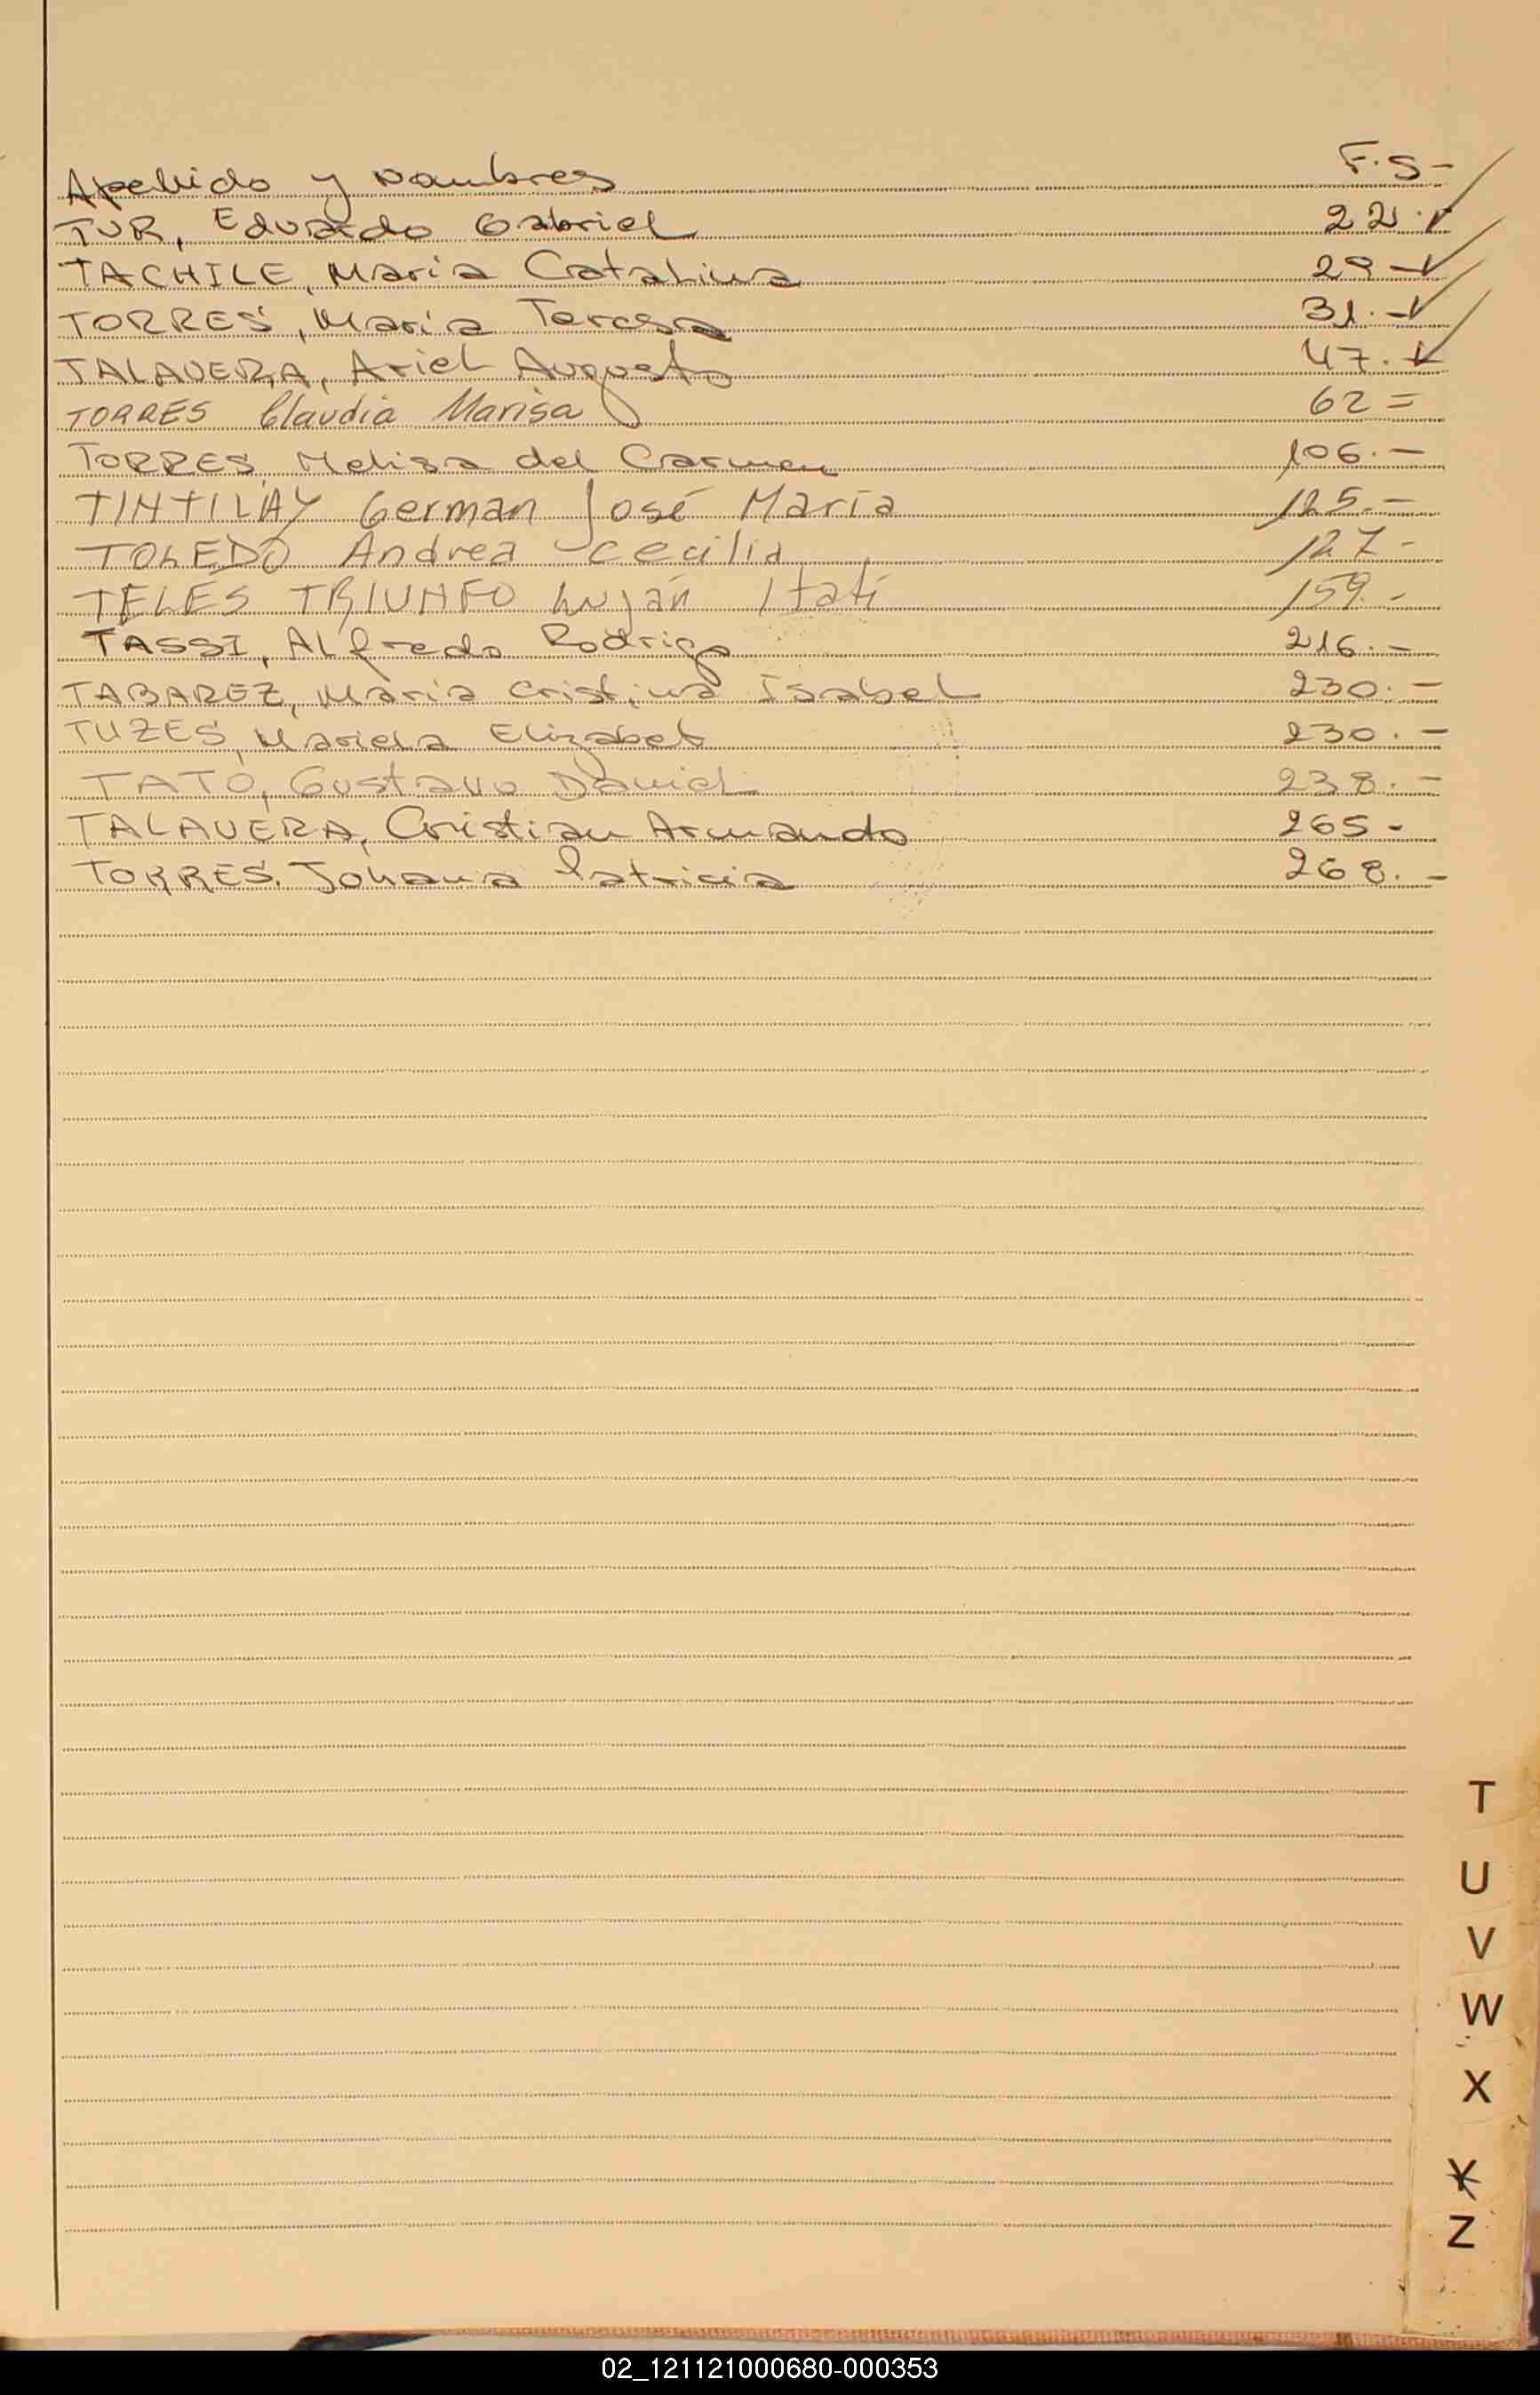 Apellido y Nombres F.S-
TUR, Eduardo Gabriel 22.-
TACHILE, Maria Catalina 29-
TORRES, Maria Teresa 31.-
TALAVERA, Ariel Augusto 47.-
TORRES Claudia Marisa 62=
TORRES, Melisa del Carmen 106.-
TINTILAY German José María 125.-
TOLEDO Andrea Cecilia 127-
TELES TRIUNFO Luján Itatí 159.-
TASSI, Alfredo Rodrigo 216.-
TABAREZ, Maria Cristina Isabel 230.-
TUZES, Mariela Elizabet 230.-
TATO, Gustavo Daniel 238.-
TALAVERA, Cristian Armando 265-
TORRES, Johana Patricia 268.-
T
U
V
W
X
Y
Z
02_121121000680-000353